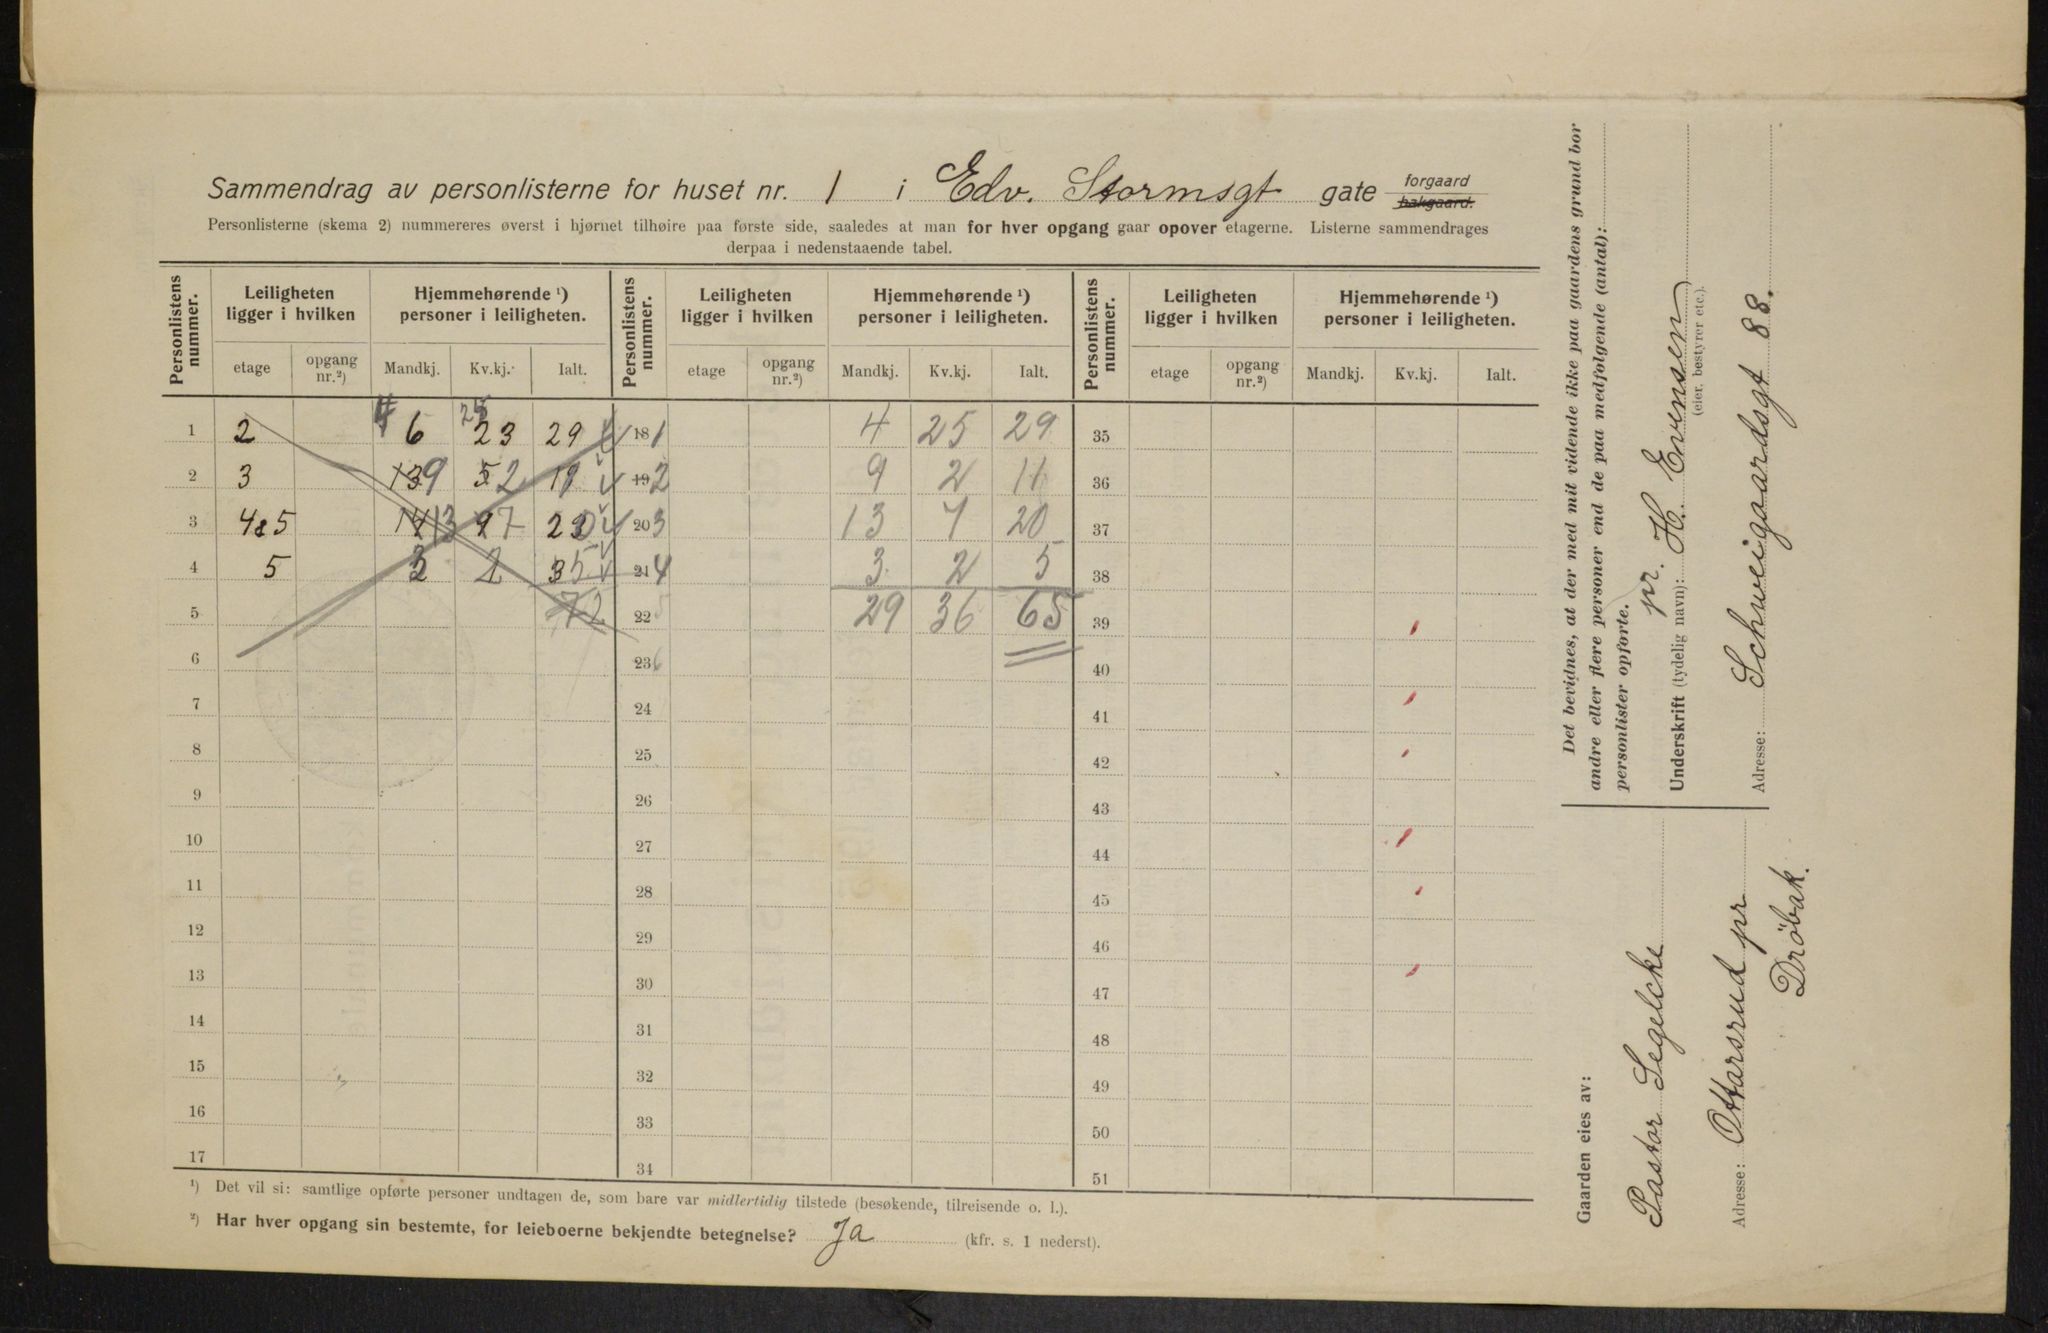 Sammendrag av personlisterne for huset nr. 1 i Edv. Stormsgt gate forgaard bakgaard.
Personlisterne (skema 2) nummereres øverst i hjørnet tilhøire paa første side, saaledes at man for hver opgang gaar opover etagerne. Listerne sammendrages
derpaa i nedenstaaende tabel.
Personlistens nummer. Leiligheten ligger i hvilken Hjemmehørende ¹) personer i leiligheten. Personlistens nummer. Leiligheten ligger i hvilken Hjemmehørende ¹) personer i leiligheten. Personlistens nummer. Leiligheten ligger i hvilken Hjemmehørende ¹) personer i leiligheten.
etage opgang nr.²) Mandkj. Kv.kj. Ialt. etage opgang nr.²) Mandkj. Kv.kj. Ialt. etage opgang nr.²) Mandkj. Kv.kj. Ialt.
1 2 4 6 25 23 29 18 1 4 25 29 35
2 3 13 9 5 2 11 19 2 9 2 11 36
3 4&5 14 13 9 7 23 0 20 3 13 7 20 37
4 5 3 2 3 5 21 4 3 2 5 38
5 72 22 5 29 36 65 39
6 23 6 40
7 24 41
8 25 42
9 26 43
10 27 44
11 28 45
12 29 46
13 30 47
14 31 48
15 32 49
16 33 50
17 34 51
¹) Det vil si: samtlige opførte personer undtagen de, som bare var midlertidig tilstede (besøkende, tilreisende o. l.).
²) Har hver opgang sin bestemte, for leieboerne bekjendte betegnelse? Ja (kfr. s. 1 nederst).
Det bevidnes, at der med mit vidende ikke paa gaardens grund bor
andre eller flere personer end de paa medfølgende (antal):
personlister opførte.
pr. H. Evensen
Underskrift (tydelig navn):
(eier, bestyrer etc.).
Adresse: Schweigaardsgt 88.
Gaarden eies av:
Pastor Segelcke
Adresse: Ottarsrud pr
Dröbak.